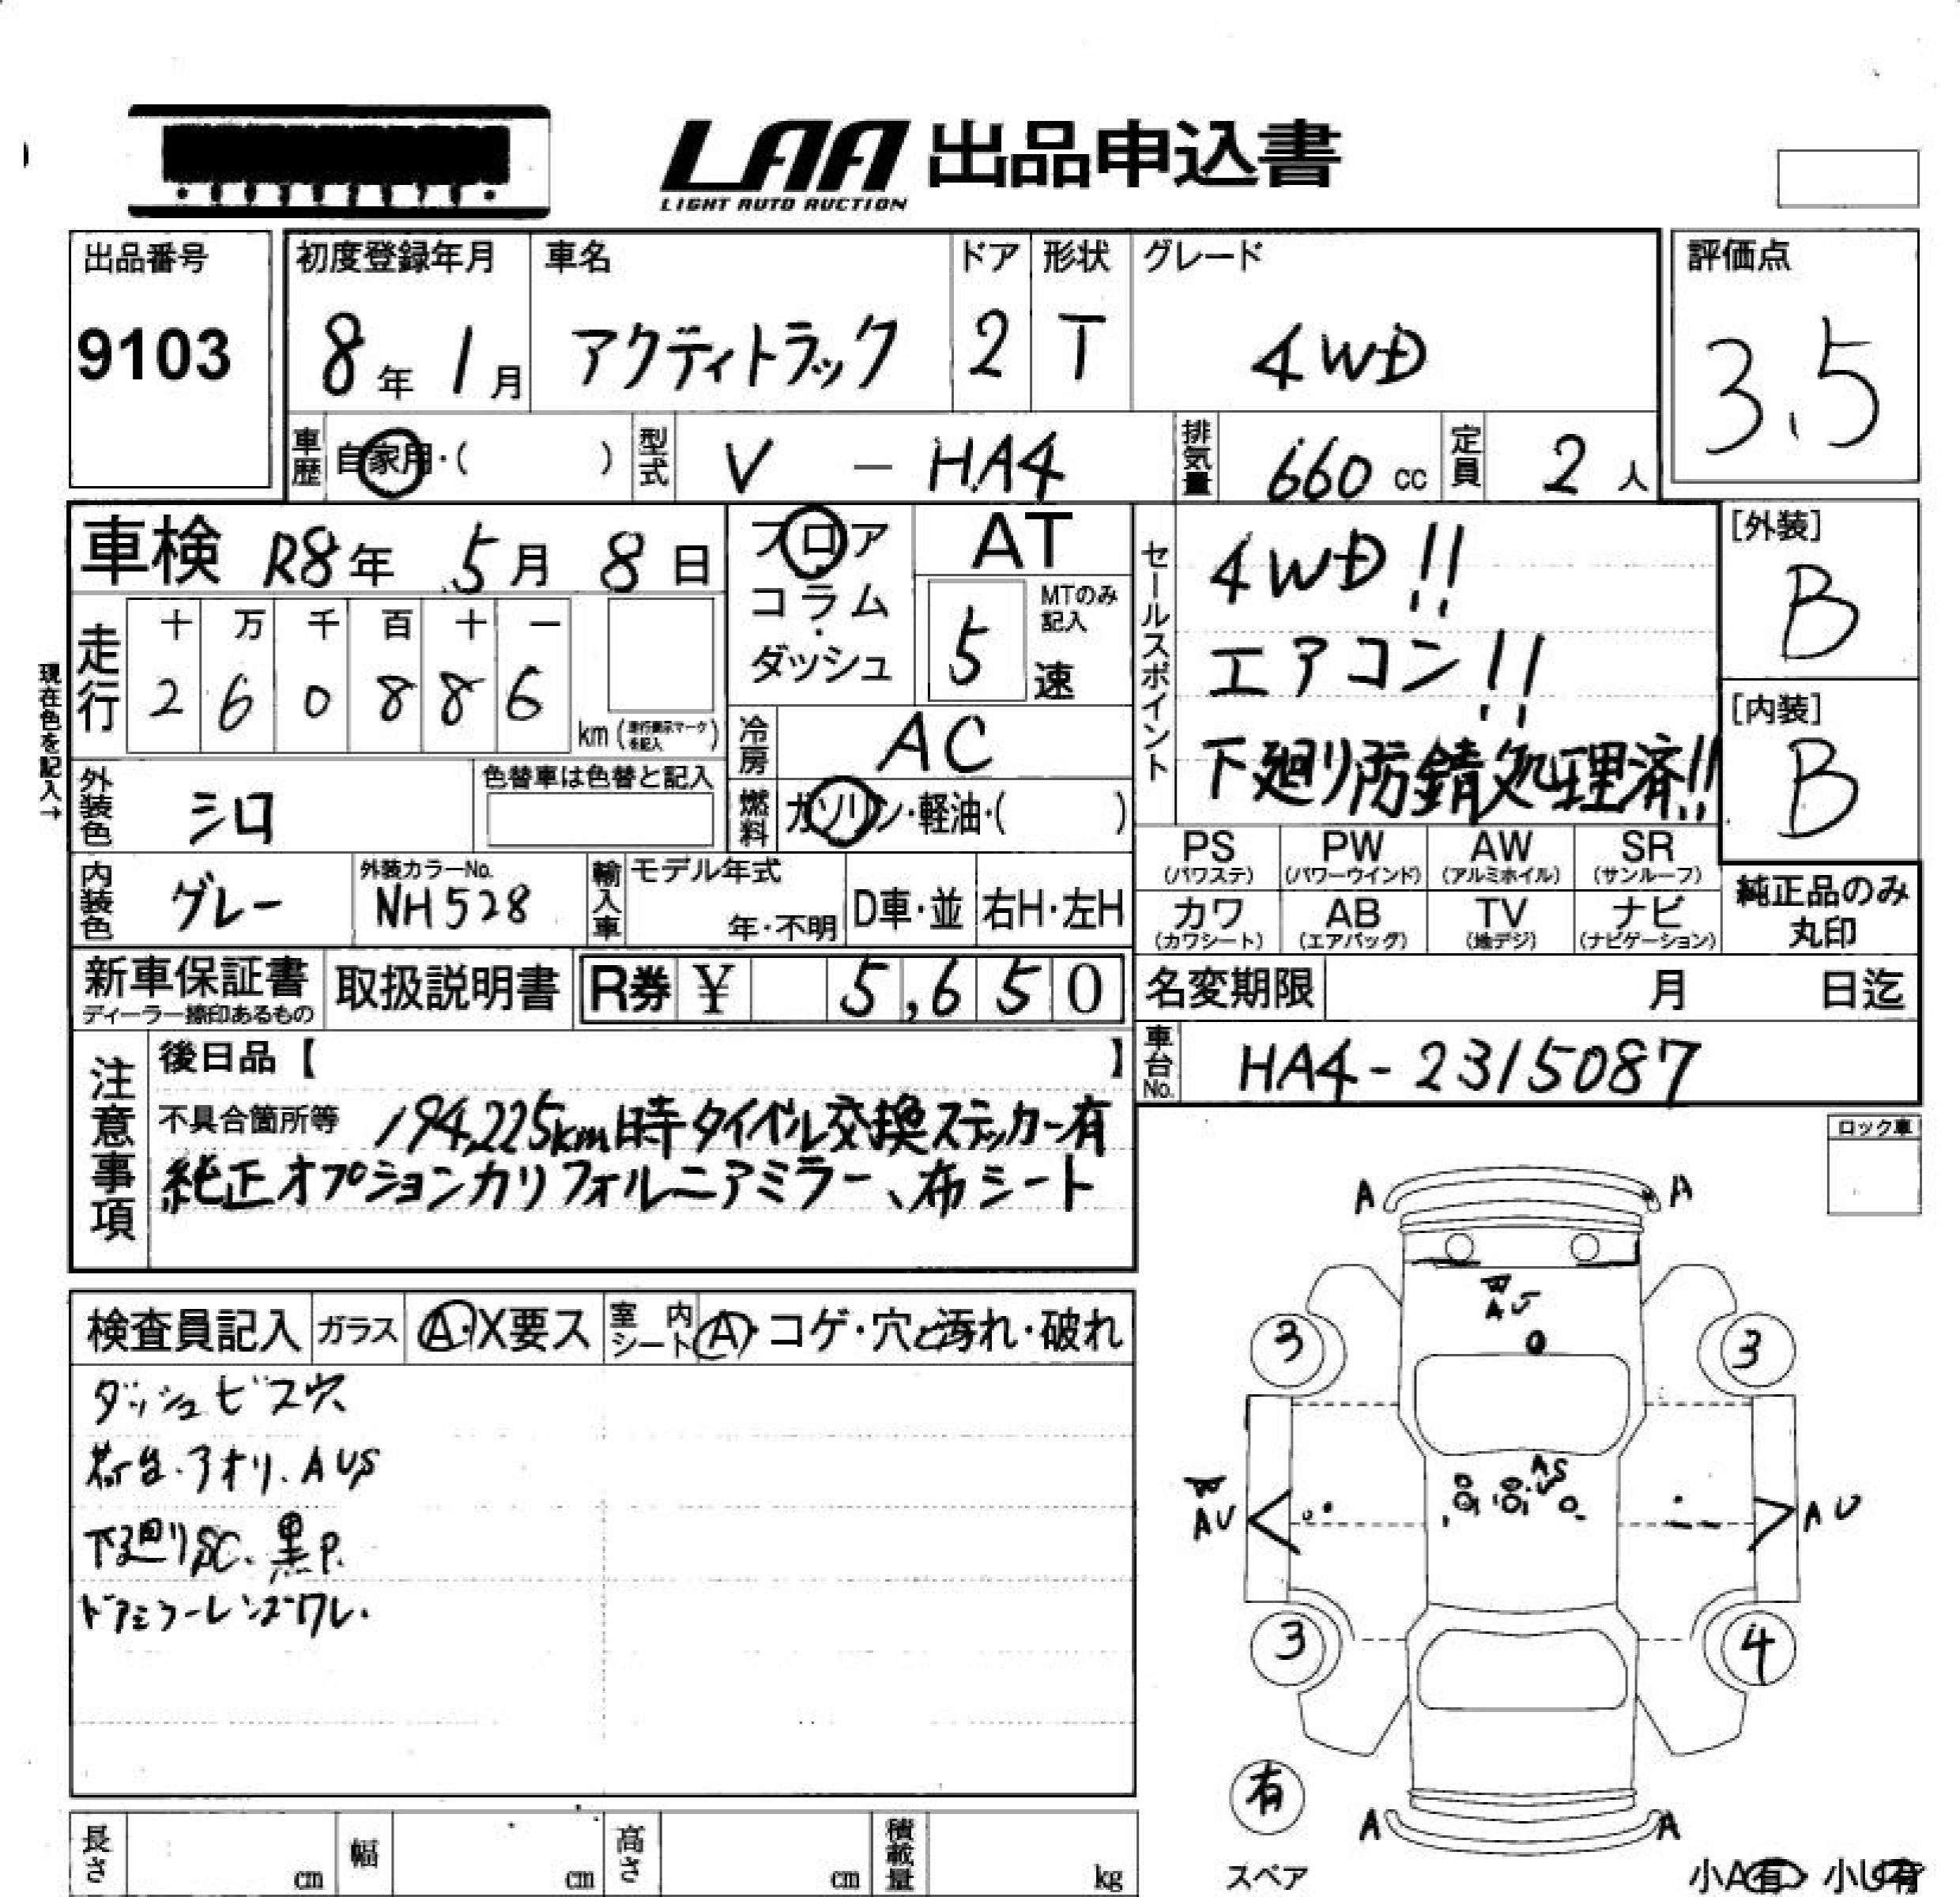 LAA 出品申込書
LIGHT AUTO AUCTION
出品番号
9103
初度登録年月
8年 1月
車名
アクティトラック
ドア
2
形状
T
グレード
4WD
評価点
3.5
車歴 自家用・( )
型式 V - HA4
排気量 660 cc
定員 2 人
車検 R8年 5月 8日
フロア
コラム・
ダッシュ
AT
MTのみ記入
5 速
セールスポイント
4WD!!
エアコン!!
下廻り防錆処理済!!
[外装]
B
[内装]
B
現在色を記入→
走行
十 万 千 百 十 一
2 6 0 8 8 6
km (走行表示マークを記入)
冷房 AC
燃料 ガソリン・軽油・( )
外装色 シロ
色替車は色替と記入
内装色 グレー
外装カラーNo.
NH528
輸入車
モデル年式
年・不明
D車・並
右H・左H
PS (パワステ)
PW (パワーウインド)
AW (アルミホイル)
SR (サンルーフ)
カワ (カワシート)
AB (エアバッグ)
TV (地デジ)
ナビ (ナビゲーション)
純正品のみ
丸印
新車保証書
ディーラー捺印あるもの
取扱説明書
R券 ¥ 5,650
名変期限 月 日迄
車台No. HA4-2315087
注意事項
後日品【 】
不具合箇所等 194,225km時タイベル交換ステッカー有
純正オプションカリフォルニアミラー、布シート
ロック車
検査員記入 ガラス A・X要ス
室内シート A・コゲ・穴・汚れ・破れ
ダッシュビス穴
荷台.アオリ.AUS
下廻りSC.黒P.
ドアミラーレンズワレ.
A A
AS
3 3
AU AU
3 4
有
スペア
A A
小A有 小U有
長さ cm
幅 cm
高さ cm
積載量 kg